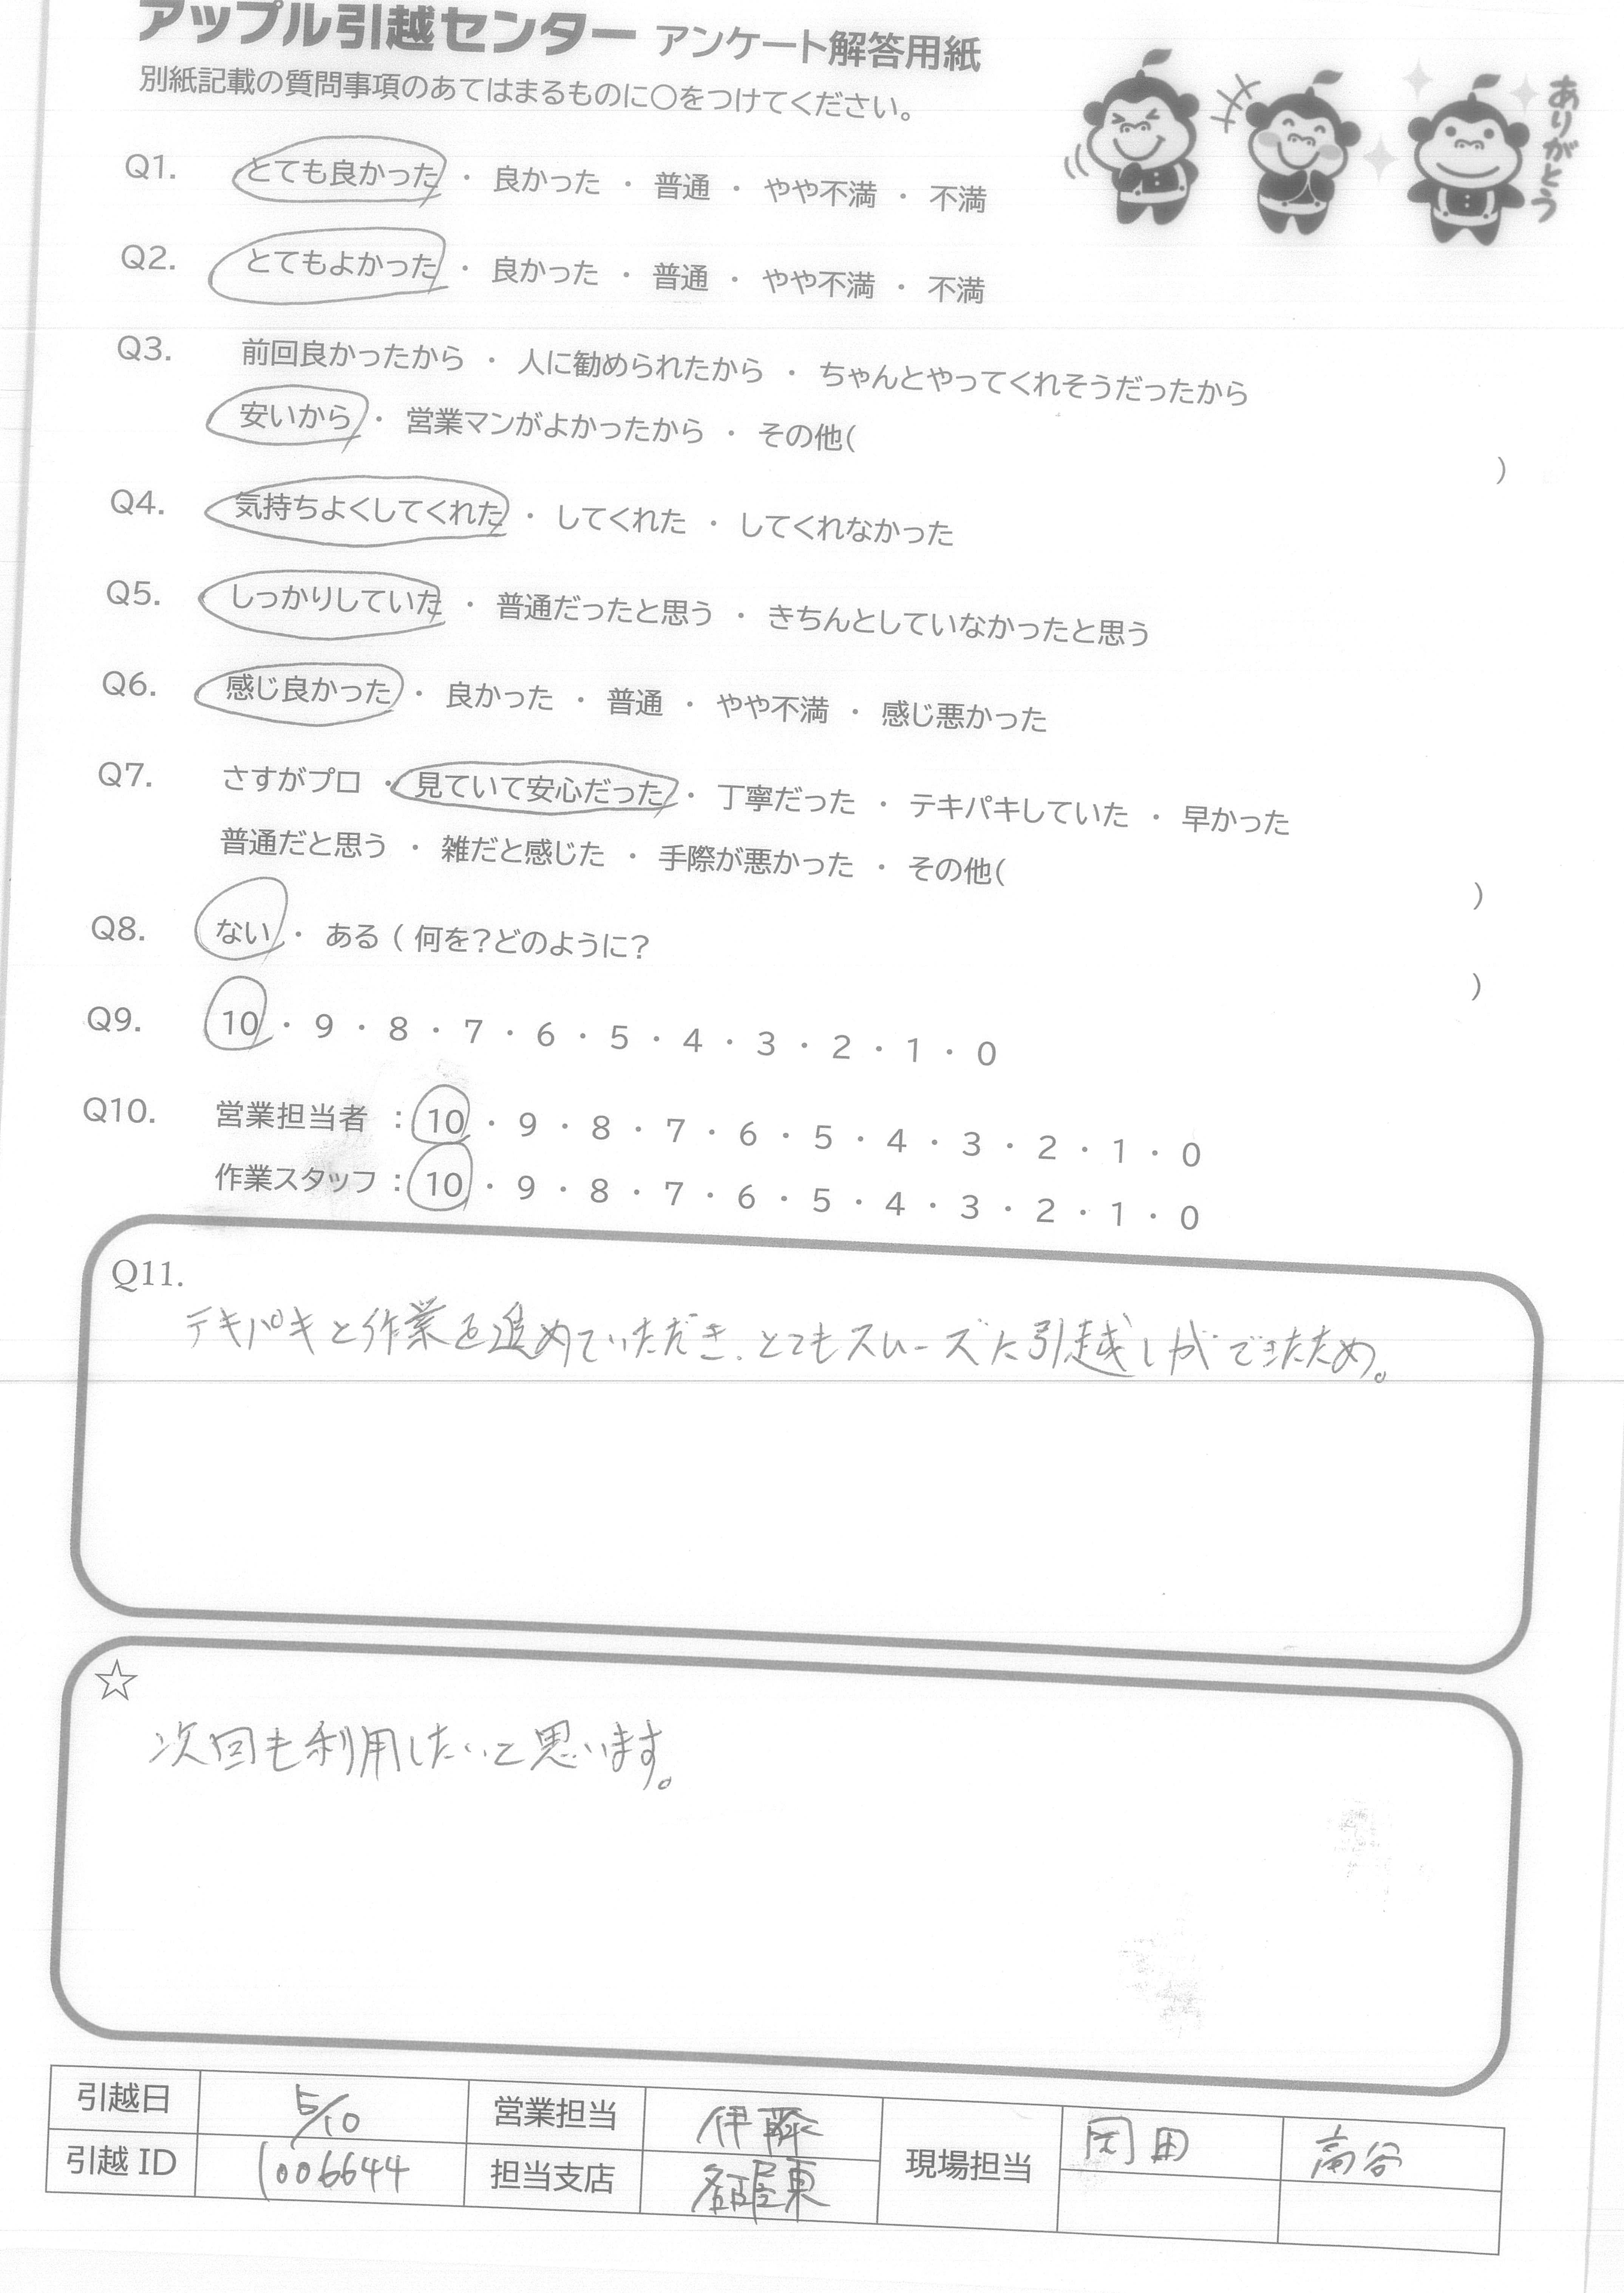 アップル引越センター アンケート解答用紙
別紙記載の質問事項のあてはまるものに○をつけてください。
ありがとう
Q1. とても良かった ・ 良かった ・ 普通 ・ やや不満 ・ 不満
Q2. とてもよかった ・ 良かった ・ 普通 ・ やや不満 ・ 不満
Q3. 前回良かったから ・ 人に勧められたから ・ ちゃんとやってくれそうだったから
安いから ・ 営業マンがよかったから ・ その他( )
Q4. 気持ちよくしてくれた ・ してくれた ・ してくれなかった
Q5. しっかりしていた ・ 普通だったと思う ・ きちんとしていなかったと思う
Q6. 感じ良かった ・ 良かった ・ 普通 ・ やや不満 ・ 感じ悪かった
Q7. さすがプロ ・ 見ていて安心だった ・ 丁寧だった ・ テキパキしていた ・ 早かった
普通だと思う ・ 雑だと感じた ・ 手際が悪かった ・ その他( )
Q8. ない ・ ある ( 何を?どのように? )
Q9. 10 ・ 9 ・ 8 ・ 7 ・ 6 ・ 5 ・ 4 ・ 3 ・ 2 ・ 1 ・ 0
Q10. 営業担当者 : 10 ・ 9 ・ 8 ・ 7 ・ 6 ・ 5 ・ 4 ・ 3 ・ 2 ・ 1 ・ 0
作業スタッフ : 10 ・ 9 ・ 8 ・ 7 ・ 6 ・ 5 ・ 4 ・ 3 ・ 2 ・ 1 ・ 0
Q11.
テキパキと作業を進めていただき、とてもスムーズに引越しができたため。
☆
次回も利用したいと思います。
引越日 5/10 営業担当 伊藤 現場担当 岡田 高谷
引越 ID 1006644 担当支店 名古屋東